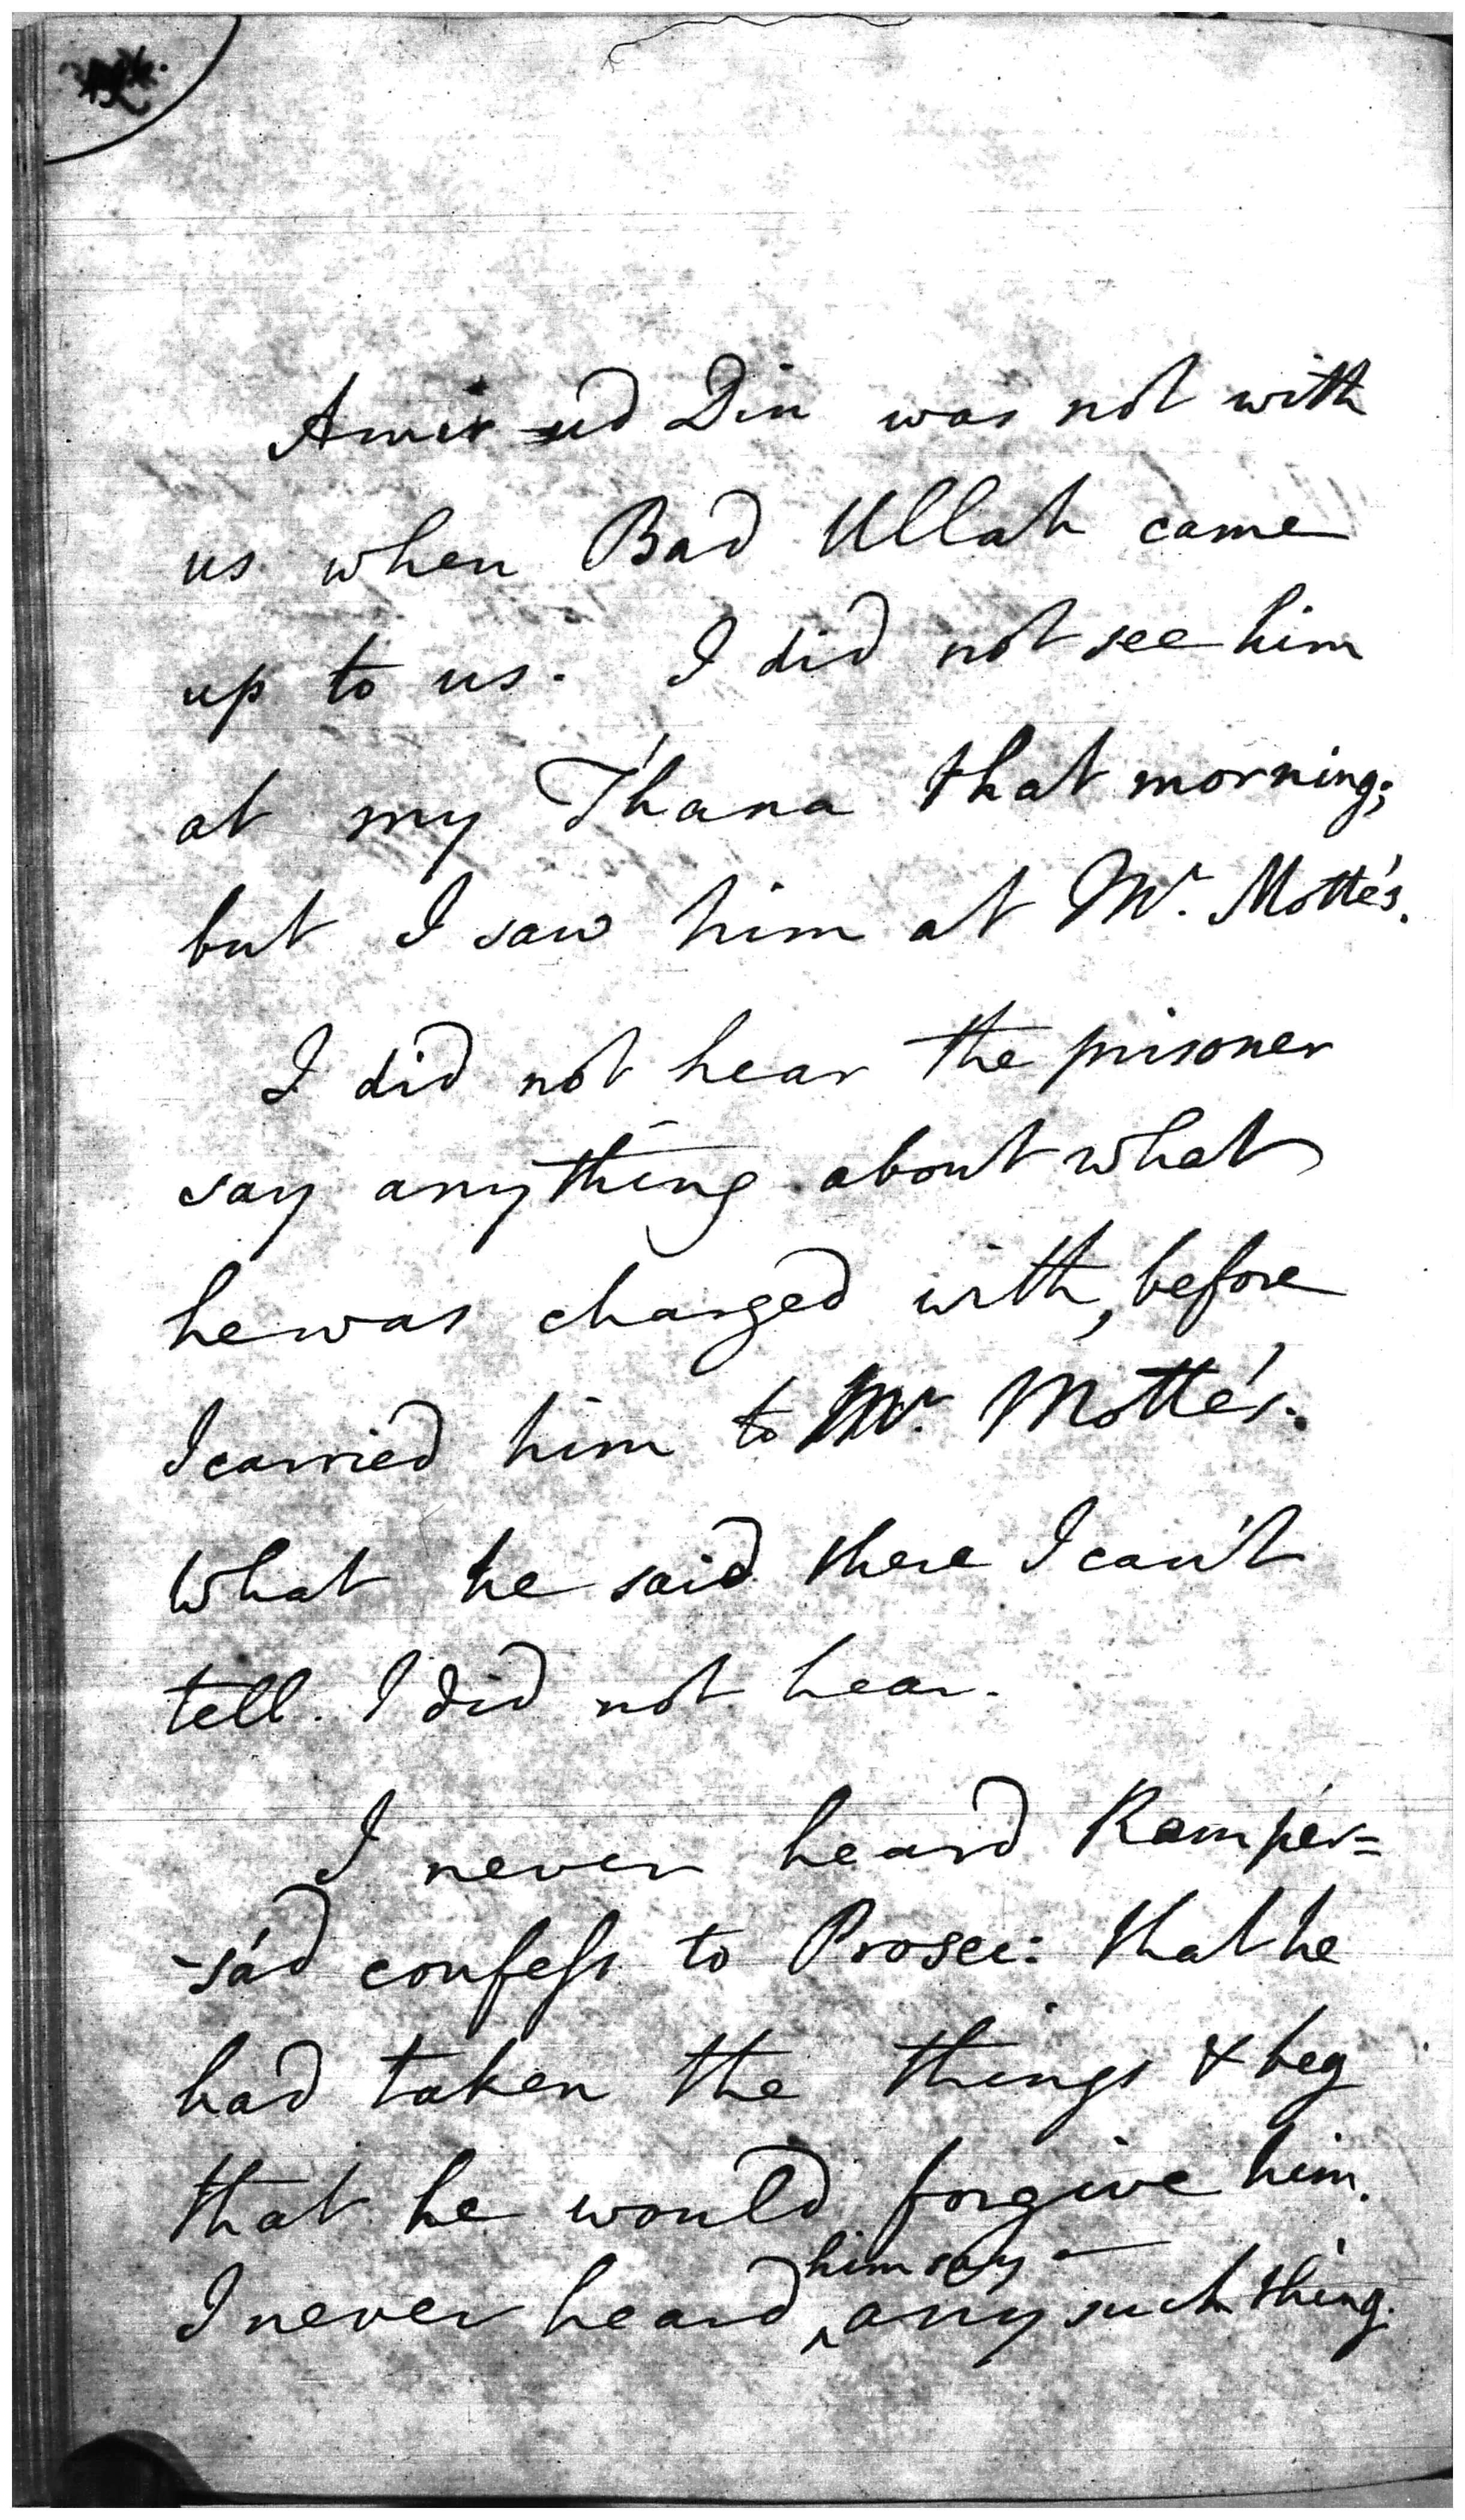 Amir ud Din was not with
us when Bad Ullah came
up to us. I did not see him
at my Thana that morning;
but I saw him at Mr. Motte's.
I did not hear the prisoner
say anything about what
he was charged with, before
I carried him to Mr. Motte's.
What he said there I can't
tell. I did not hear.
I never heard Ramper=
-sád confess to Prosec: that he
had taken the things & beg
that he would forgive him.
him say
I never heard ‸ any such thing.